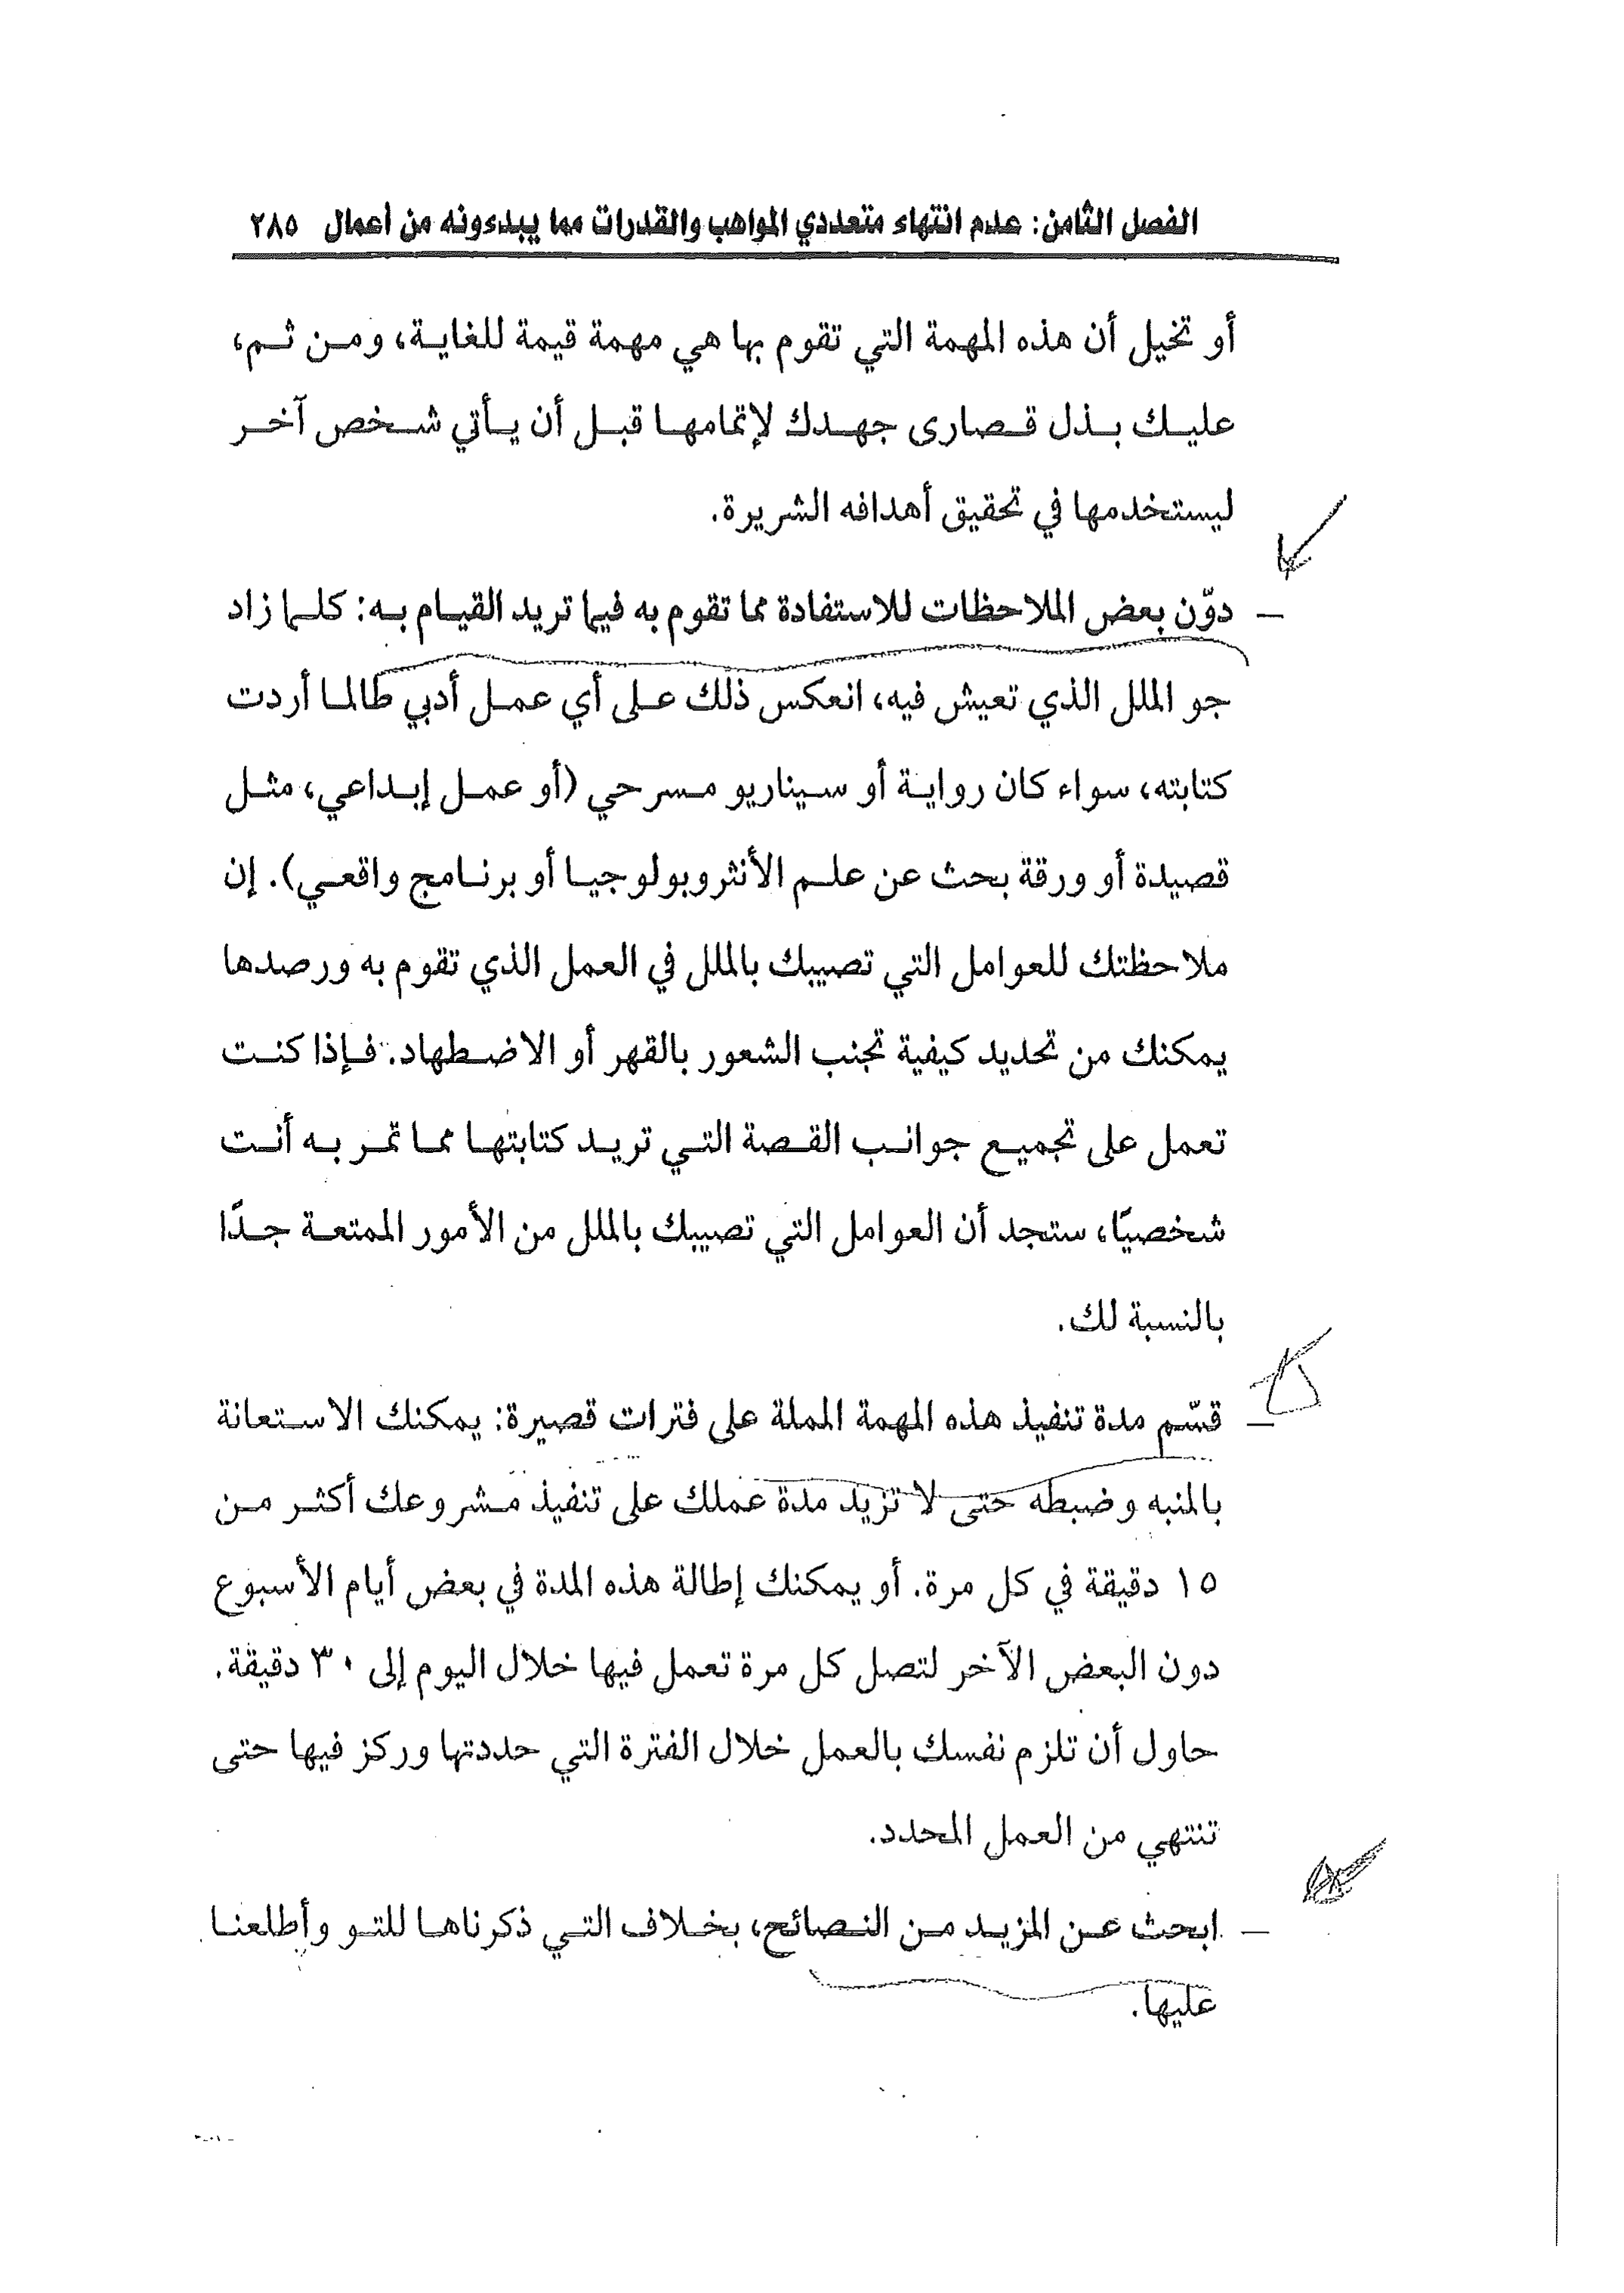 الفصل الثامن: عدم انتهاء متعددي المواهب والقدرات مما يبدءونه من أعمال ٢٨٥
أو تخيل أن هذه المهمة التي تقوم بها هي مهمة قيمة للغاية، ومن ثم،
عليك بذل قصارى جهدك لإتمامها قبل أن يأتي شخص آخر
ليستخدمها في تحقيق أهدافه الشريرة.
– دوّن بعض الملاحظات للاستفادة مما تقوم به فيما تريد القيام به: كلما زاد
جو الملل الذي تعيش فيه، انعكس ذلك على أي عمل أدبي طالما أردت
كتابته، سواء كان رواية أو سيناريو مسرحي (أو عمل إبداعي، مثل
قصيدة أو ورقة بحث عن علم الأنثروبولوجيا أو برنامج واقعي). إن
ملاحظتك للعوامل التي تصيبك بالملل في العمل الذي تقوم به ورصدها
يمكنك من تحديد كيفية تجنب الشعور بالقهر أو الاضطهاد. فإذا كنت
تعمل على تجميع جوانب القصة التي تريد كتابتها مما تمر به أنت
شخصيًا، ستجد أن العوامل التي تصيبك بالملل من الأمور الممتعة جدًا
بالنسبة لك.
– قسّم مدة تنفيذ هذه المهمة المملة على فترات قصيرة: يمكنك الاستعانة
بالمنبه وضبطه حتى لا تزيد مدة عملك على تنفيذ مشروعك أكثر من
١٥ دقيقة في كل مرة. أو يمكنك إطالة هذه المدة في بعض أيام الأسبوع
دون البعض الآخر لتصل كل مرة تعمل فيها خلال اليوم إلى ٣٠ دقيقة.
حاول أن تلزم نفسك بالعمل خلال الفترة التي حددتها وركز فيها حتى
تنتهي من العمل المحدد.
– ابحث عن المزيد من النصائح، بخلاف التي ذكرناها للتو وأطلعنا
عليها.